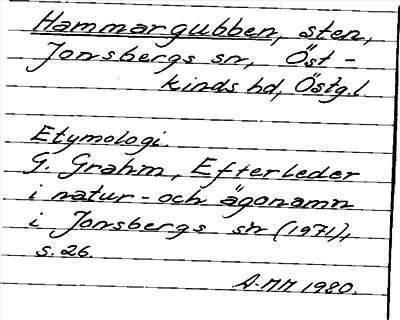 Hammargubben, sten,
Jonsbergs sn, Öst-
kinds hd, Östg.l.
Etymologi.
G. Grahm, Efterleder
i natur- och ägonamn
i Jonsbergs sn (1971),
s. 26.
A-MM 1980.